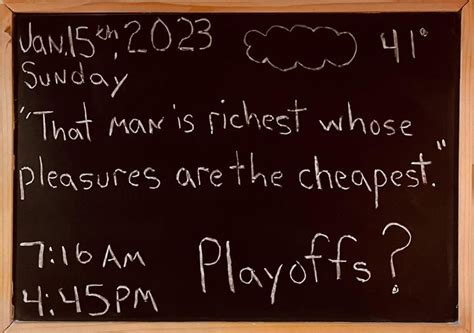 Jan. 15th, 2023 41°
Sunday
"That man is richest whose
pleasures are the cheapest."
7:16 AM
4:45PM Playoffs?